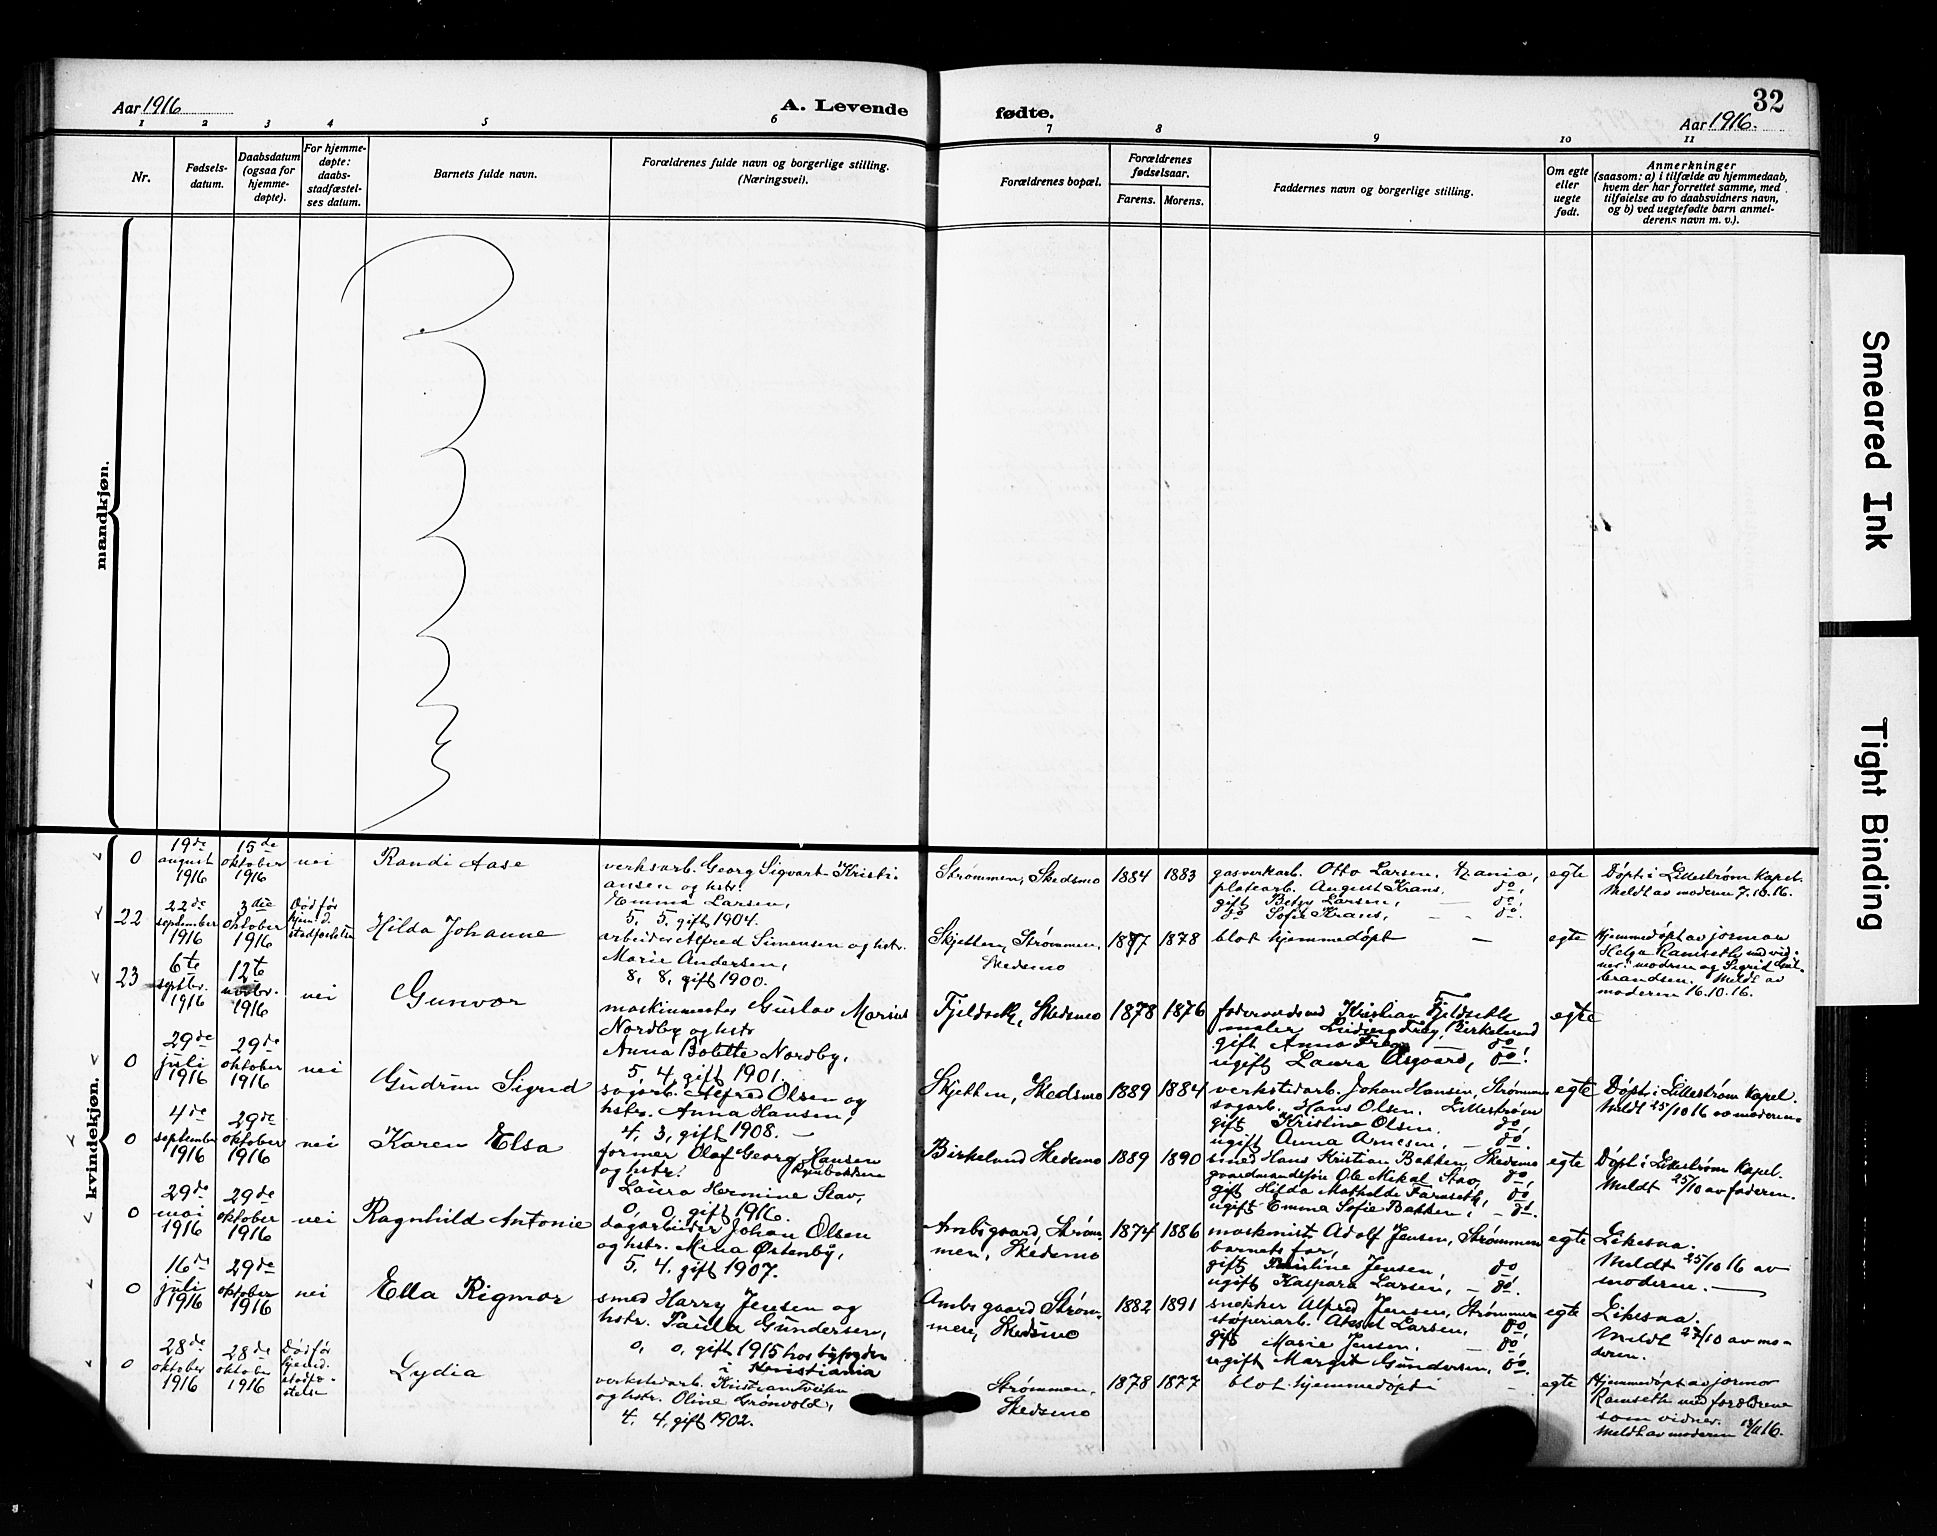 Aar 1916
A. Levende
fødte.
32
Aar 1916.
1 2 3 4 5 6 7 8 9 10 11
Nr.
Fødsels-
datum.
Daabsdatum
(ogsaa for
hjemme-
døpte).
For hjemme-
døpte:
daabs-
stadfæstel-
ses datum.
Barnets fulde navn.
Forældrenes fulde navn og borgerlige stilling.
(Næringsvei).
Forældrenes bopæl.
Forældrenes
fødselsaar.
Farens. Morens.
Faddernes navn og borgerlige stilling.
Om egte
eller
uegte
født.
Anmerkninger
(saasom: a) i tilfælde av hjemmedaab,
hvem der har forrettet samme, med
tilføielse av to daabsvidners navn,
og b) ved uegtefødte barn anmel-
derens navn m. v.).
mandkjøn.
kvindekjøn.
0
19de
august
1916
15de
oktober
1916
nei
Randi Aase
verksarb. Georg Sigvart Kristi-
ansen og hstr.
Emma Larsen,
5, 5, gift 1904.
Strømmen, Skedsmo
1884 1883
gasverkarb. Otto Larsen, Kania,
platearb. August Krans, do,
gift Betzy Larsen, — do,
do Sofie Krans, - - do.
egte
Døpt i Lillestrøm Kapel.
Meldt av moderen 7.10.16.
22
22de
september
1916
3die
oktober
1916
Død før
hjemd.
stadfæstelsen
Hilda Johanne
arbeider Alfred Simensen og hstr.
Marie Andersen,
8, 8, gift 1900.
Skjetten, Strømmen,
Skedsmo
1877 1878
blot hjemmedøpt —
egte
Hjemmedøpt av jormor
Helga Ramseth, med vid-
ner: moderen og Sigrid Gul-
brandsen. Meldt av
moderen 16.10.16.
23
6te
septbr.
1916
12te
novbr.
1916
nei
Gunvor
maskinmester Gustav Marius
Nordby og hstr
Anna Bolette Nordby,
5, 4, gift 1901.
Fjeldsek, Skedsmo
1878 1876
Kristian
maler Birkelund
gift Anna do
ugift Laura Asgaard, do.
egte
0
29de
juli
1916
29de
oktober
1916
nei
Gudrun Sigrid
sagarb. Alfred Olsen og
hstr. Anna Hansen,
4, 3, gift 1908. —
Skjetten, Skedsmo
1889 1884
verkstedarb. Johan Hansen, Strømmen
sagarb. Hans Olsen, Lillestrøm
gift Kristine Olsen, do,
ugift Anna Arnesen, — do.
egte
Døpt i Lillestrøm Kapel.
Meldt 25/10 16 av moderen.
0
4de
september
1916
29de
oktober
1916
nei
Karen Elsa
former Olaf Georg Hansen
og hstr.
Laura Hermine Stav,
0, 0, gift 1916.
Birkelund Skedsmo
1889 1890
smed Hans Kristian Bakken, Skedsmo
gaardmandssøn Ole Mikal Stav, do,
gift Hilda Mathilde Farseth, do
ugift Emma Sofie Bakken, - do.
egte
Døpt i Lillestrøm Kapel.
Meldt 25/10 av faderen.
0
29de
mai
1916
29de
oktober
1916
nei
Ragnhild Antonie
dagarbeider Johan Olsen
og hstr. Mina Østenby,
5, 4, gift 1907.
Ambsgaard, Strøm-
men, Skedsmo
1874 1886
maskinist Adolf Jensen, Strømmen
barnets far,
gift Pauline Jensen, do
ugift Kaspara Larsen, — do.
egte
Likesaa.
Meldt 25/10 16 av
moderen. —
0
16de
juli
1916
29de
oktober
1916
nei
Ella Rigmor
smed Harry Jensen og
hstr. Paula Gundersen,
0, 0, gift 1915 hos byfogden
i Kristiania
Ambsgaard Strøm-
men, Skedsmo
1882 1891
snekker Alfred Jensen, Strømmen
støperiarb. Aksel Larsen, do,
gift Marie Jensen, do
ugift Margit Gundersen, do.
egte
Likesaa.
Meldt 27/10 av mo-
deren.
0
28de
oktober
1916
28de
oktober
1916
Død før
hjemd.
stadfæ-
stelse
Lydia
verkstedarb. Kristian
og hstr. Oline Grønvold,
4, 4, gift 1902.
Strømmen,
Skedsmo
1878 1877
blot hjemmedøpt
egte
Hjemmedøpt av jormor
Ramseth med forældrene
som vidner.
Meldt av moderen /11 16.
Smeared Ink
Tight Binding